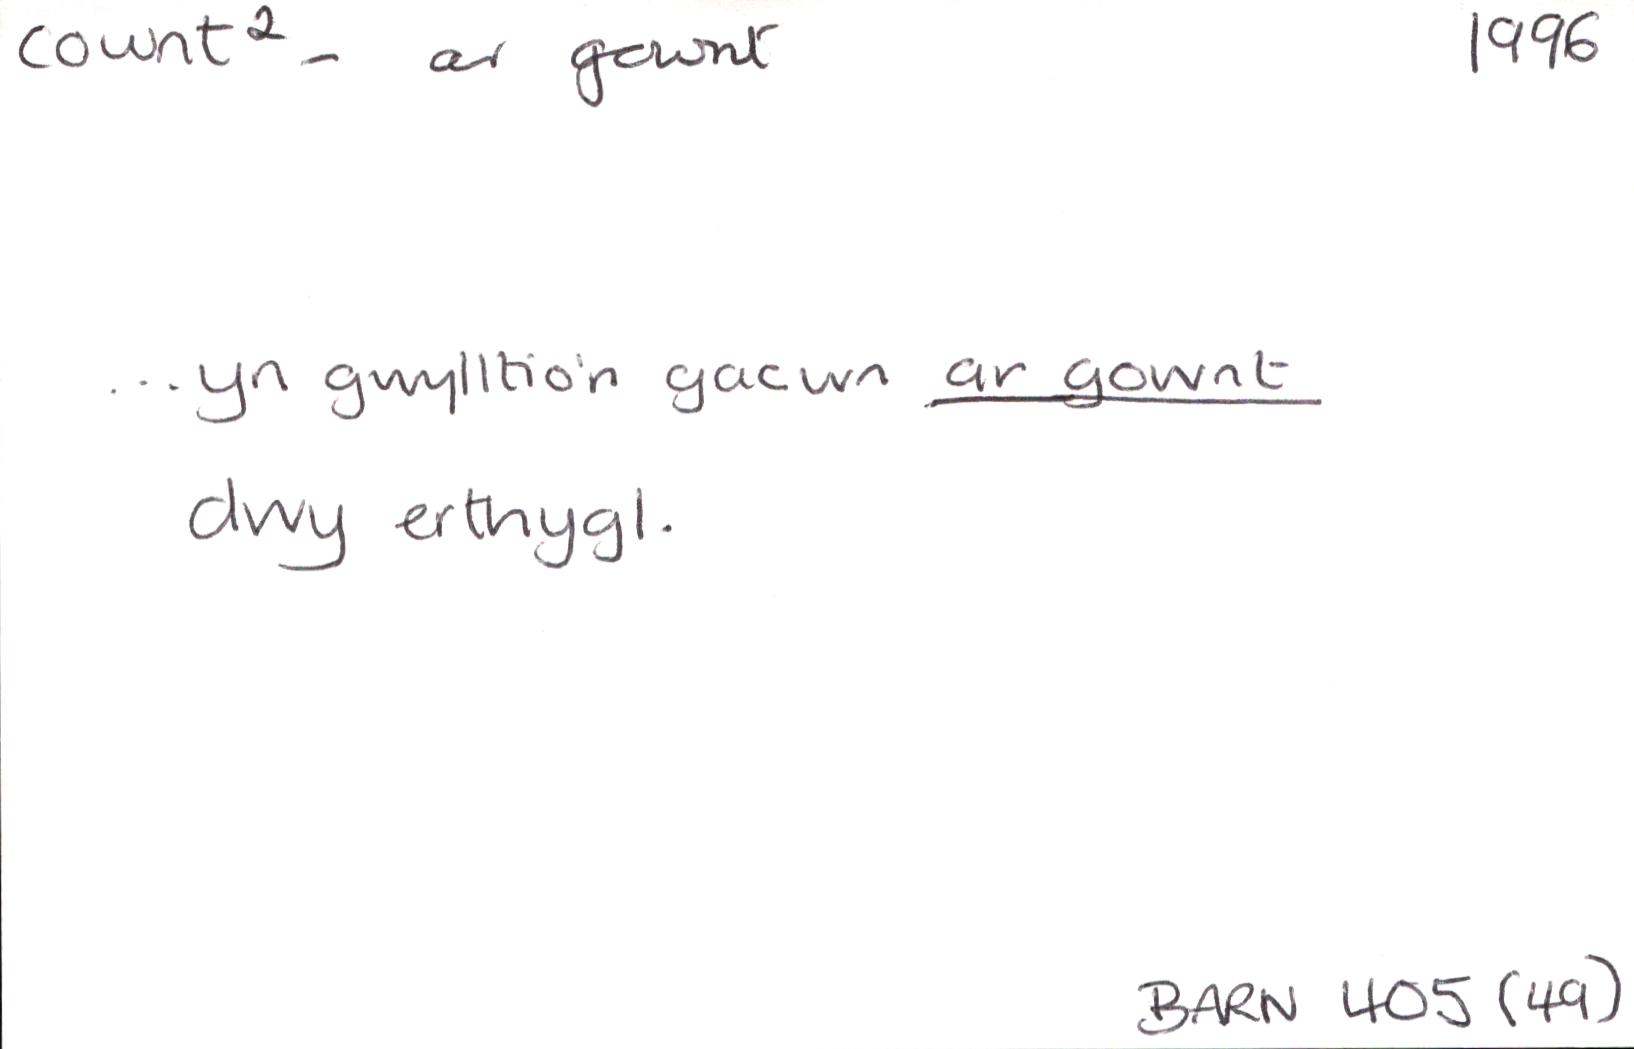 cownt² - ar gownt 1996
...yn gwylltio'n gacwn ar gownt
dwy erthygl.
BARN 405 (49)